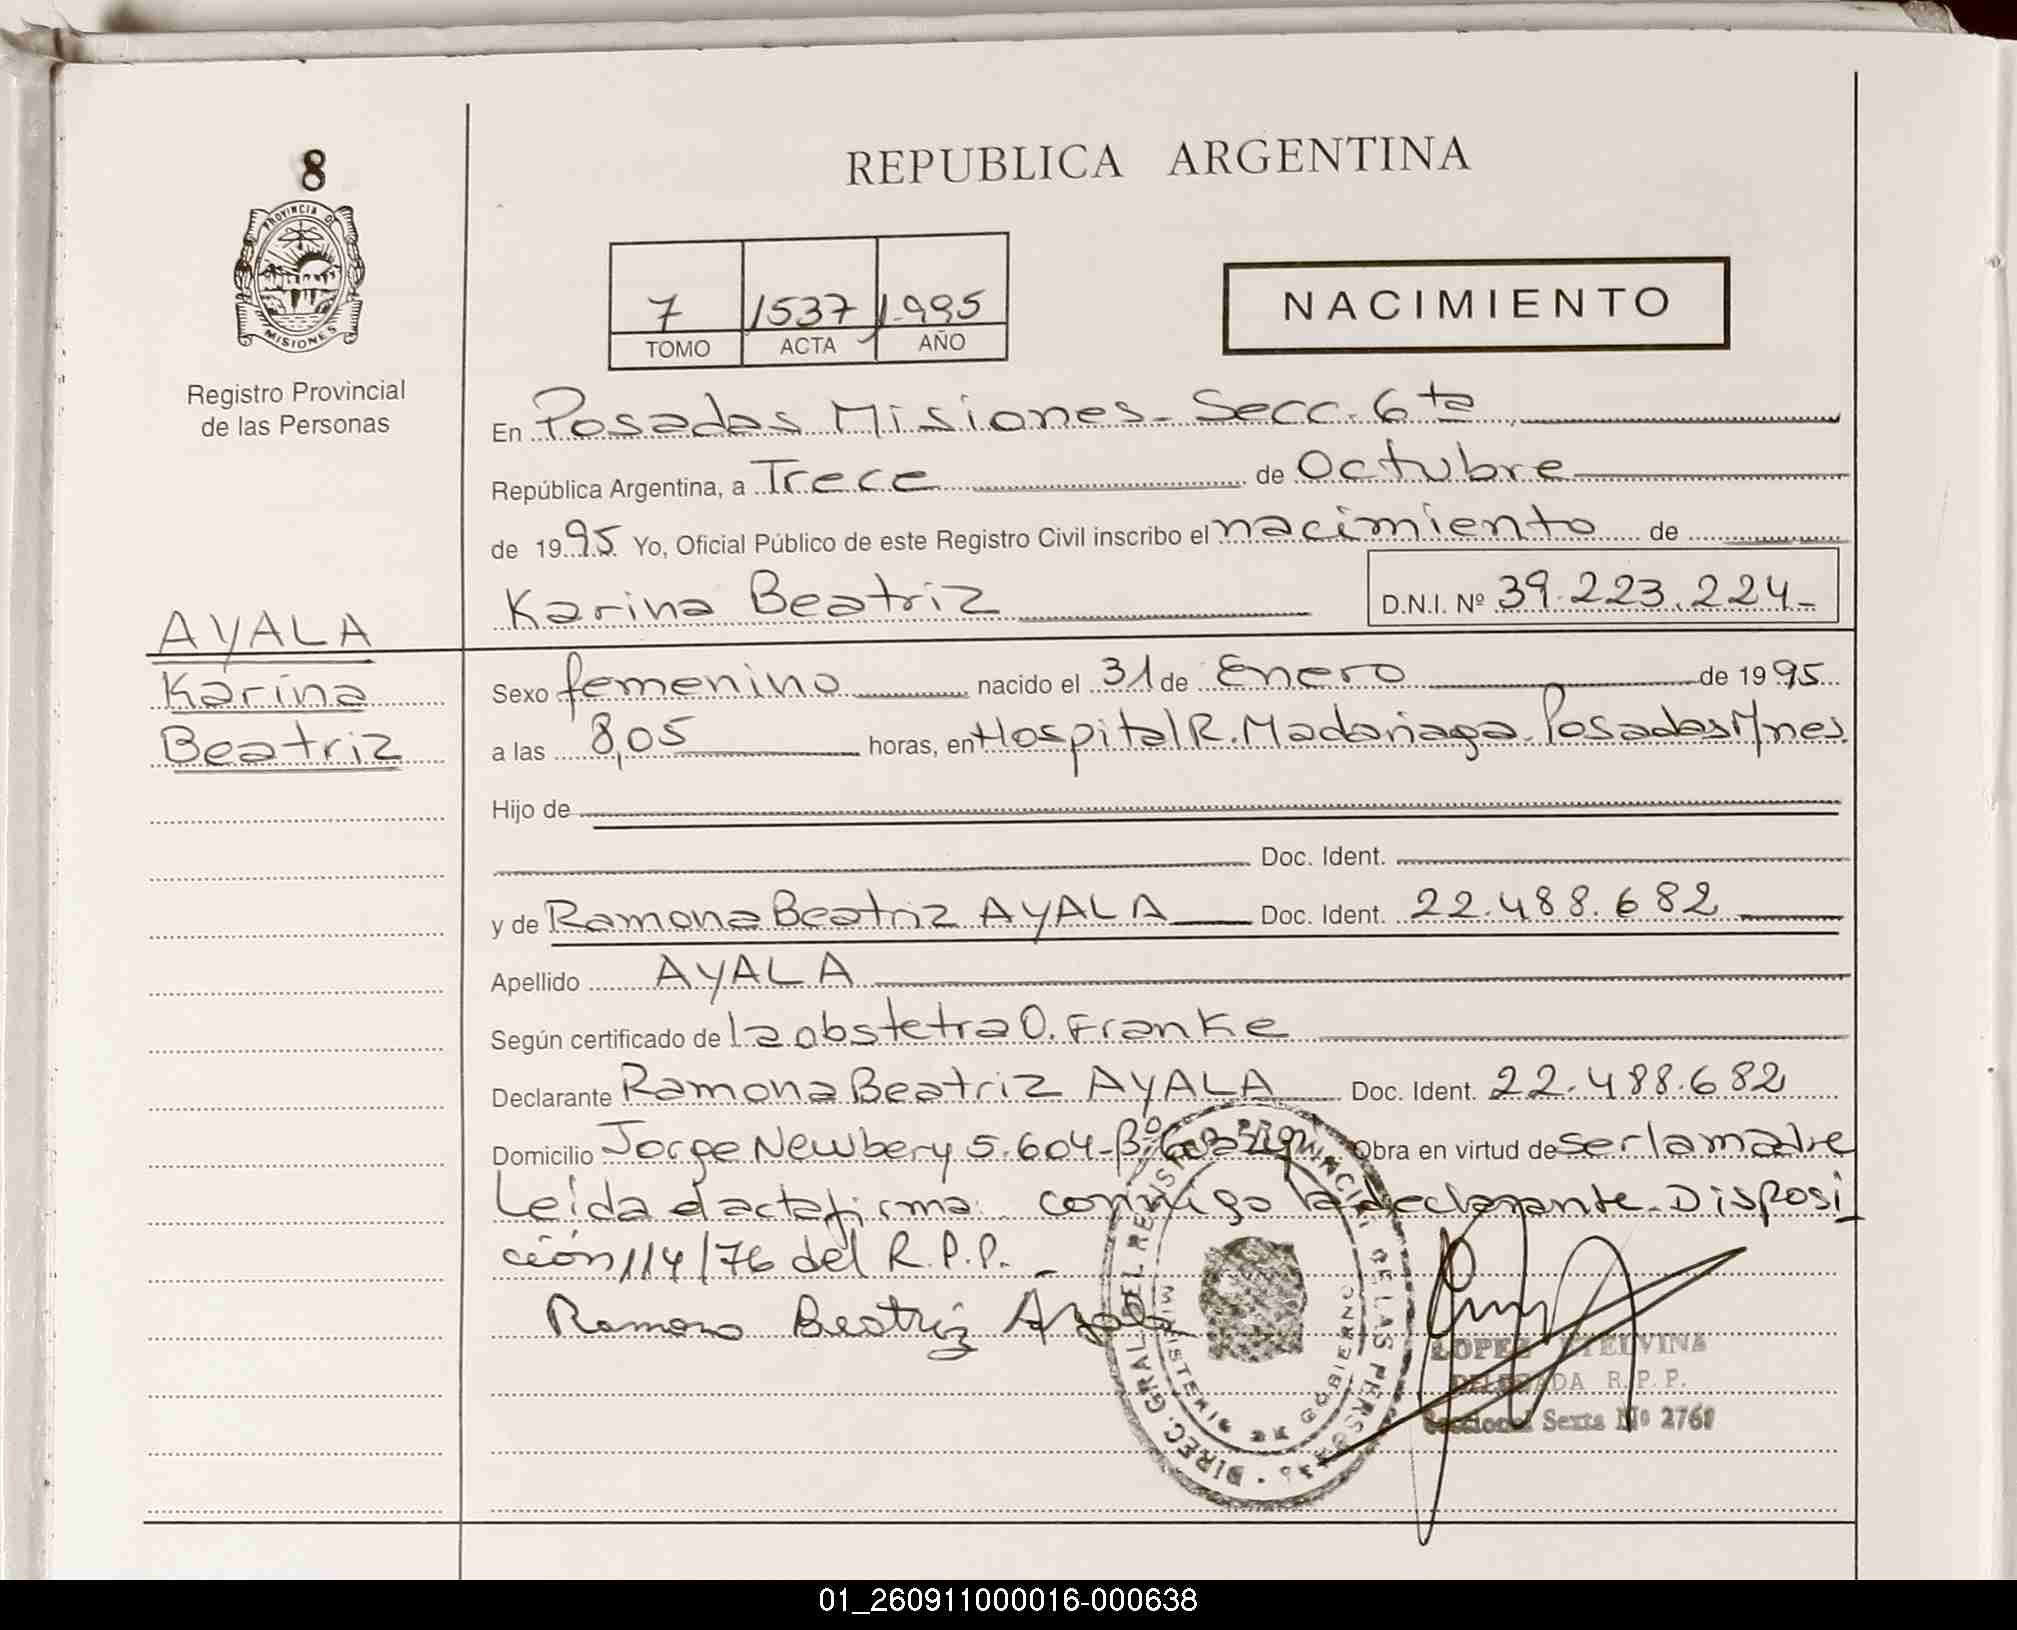 8
REPUBLICA ARGENTINA
PROVINCIA D
MISIONES
Registro Provincial
de las Personas
7 1537 1.995
TOMO ACTA AÑO
NACIMIENTO
En Posadas Misiones - Secc. 6ta
República Argentina, a Trece de Octubre
de 1995 Yo, Oficial Público de este Registro Civil inscribo el nacimiento de
Karina Beatriz D.N.I. Nº 39.223.224-
AYALA
Karina
Beatriz
Sexo femenino nacido el 31 de Enero de 1995
a las 8,05 horas, en Hospital R. Madariaga. Posadas Mnes.
Hijo de
Doc. Ident.
y de Ramona Beatriz AYALA Doc. Ident. 22.488.682
Apellido AYALA
Según certificado de la obstetra O. Franke
Declarante Ramona Beatriz AYALA Doc. Ident. 22.488.682
Domicilio Jorge Newbery 5.604 - Bº Obra en virtud de ser la madre
Leída el acta firma conmigo la declarante. Disposi
ción 114/76 del R.P.P. -
Ramona Beatriz Ayala
DIREC. GRAL. DEL REGISTRO PROVINCIAL DE LAS PERSONAS
MINISTERIO DE GOBIERNO
LOPEZ ETELVINA
DELEGADA R.P.P.
Seccional Sexta Nº 2761
01_260911000016-000638